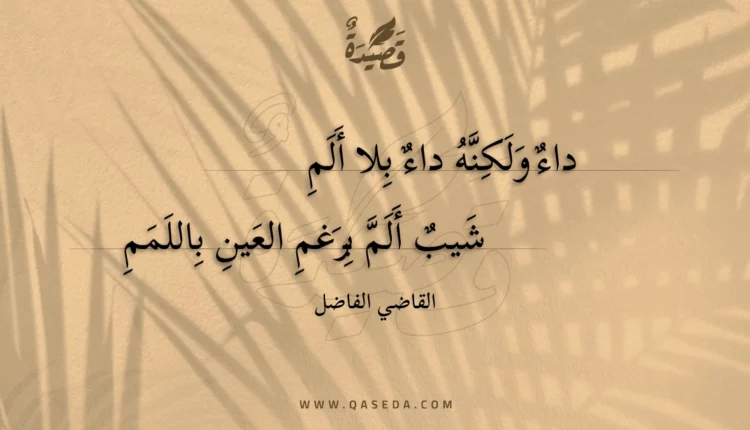 قَصِيْدَةٌ
داءٌ وَلَكِنَّهُ داءٌ بِلا أَلَمِ
شَيبٌ أَلَمَّ بِرَغمِ العَينِ بِاللَمَمِ
القاضي الفاضل
WWW.QASEDA.COM